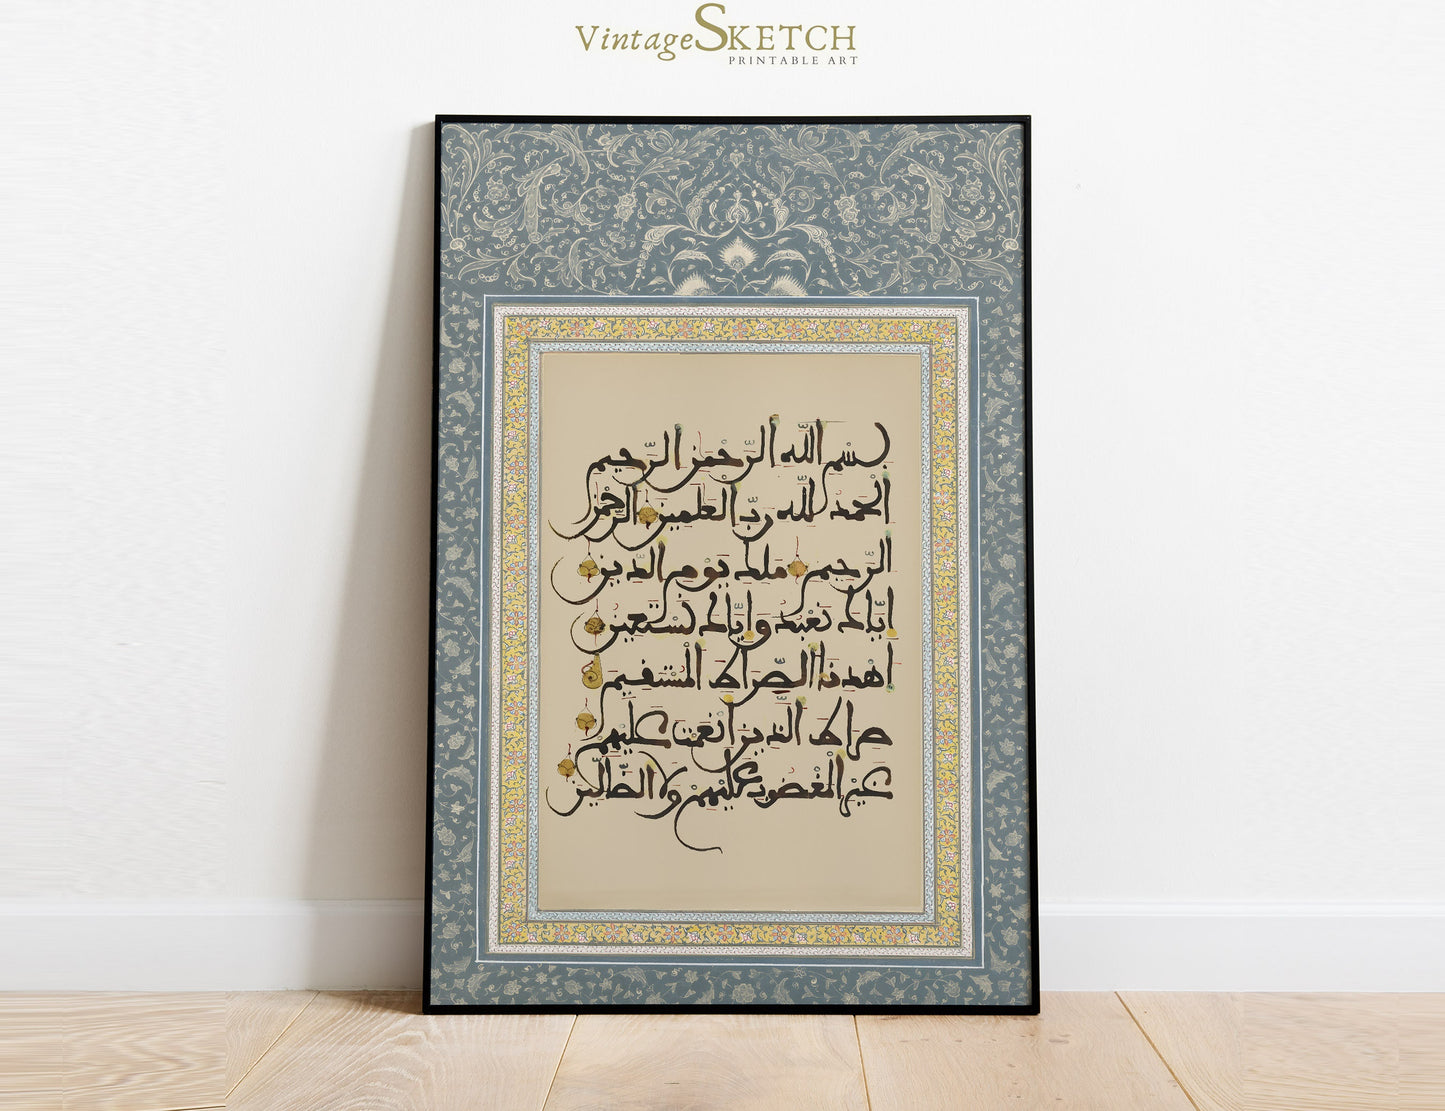 VintageSKETCH
PRINTABLE ART
بسم الله الرحمن الرحيم
الحمد لله رب العلمين الرحمن
الرحيم ملك يوم الدين
اياك نعبد واياك نستعين
اهدنا الصراط المستقيم
صراط الذين انعمت عليهم
غير المغضوب عليهم ولا الضالين